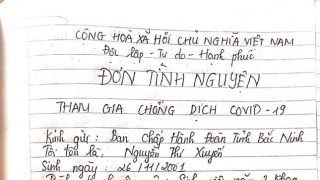 CỘNG HOÀ XÃ HỘI CHỦ NGHĨA VIỆT NAM
Độc lập - Tự do - Hạnh phúc
ĐƠN TÌNH NGUYỆN
THAM GIA CHỐNG DỊCH COVID-19
Kính gửi: Ban Chấp Hành Đoàn Tỉnh Bắc Ninh
Tôi tên là, Nguyễn Thị Xuyến
Sinh ngày: 26/11/2001